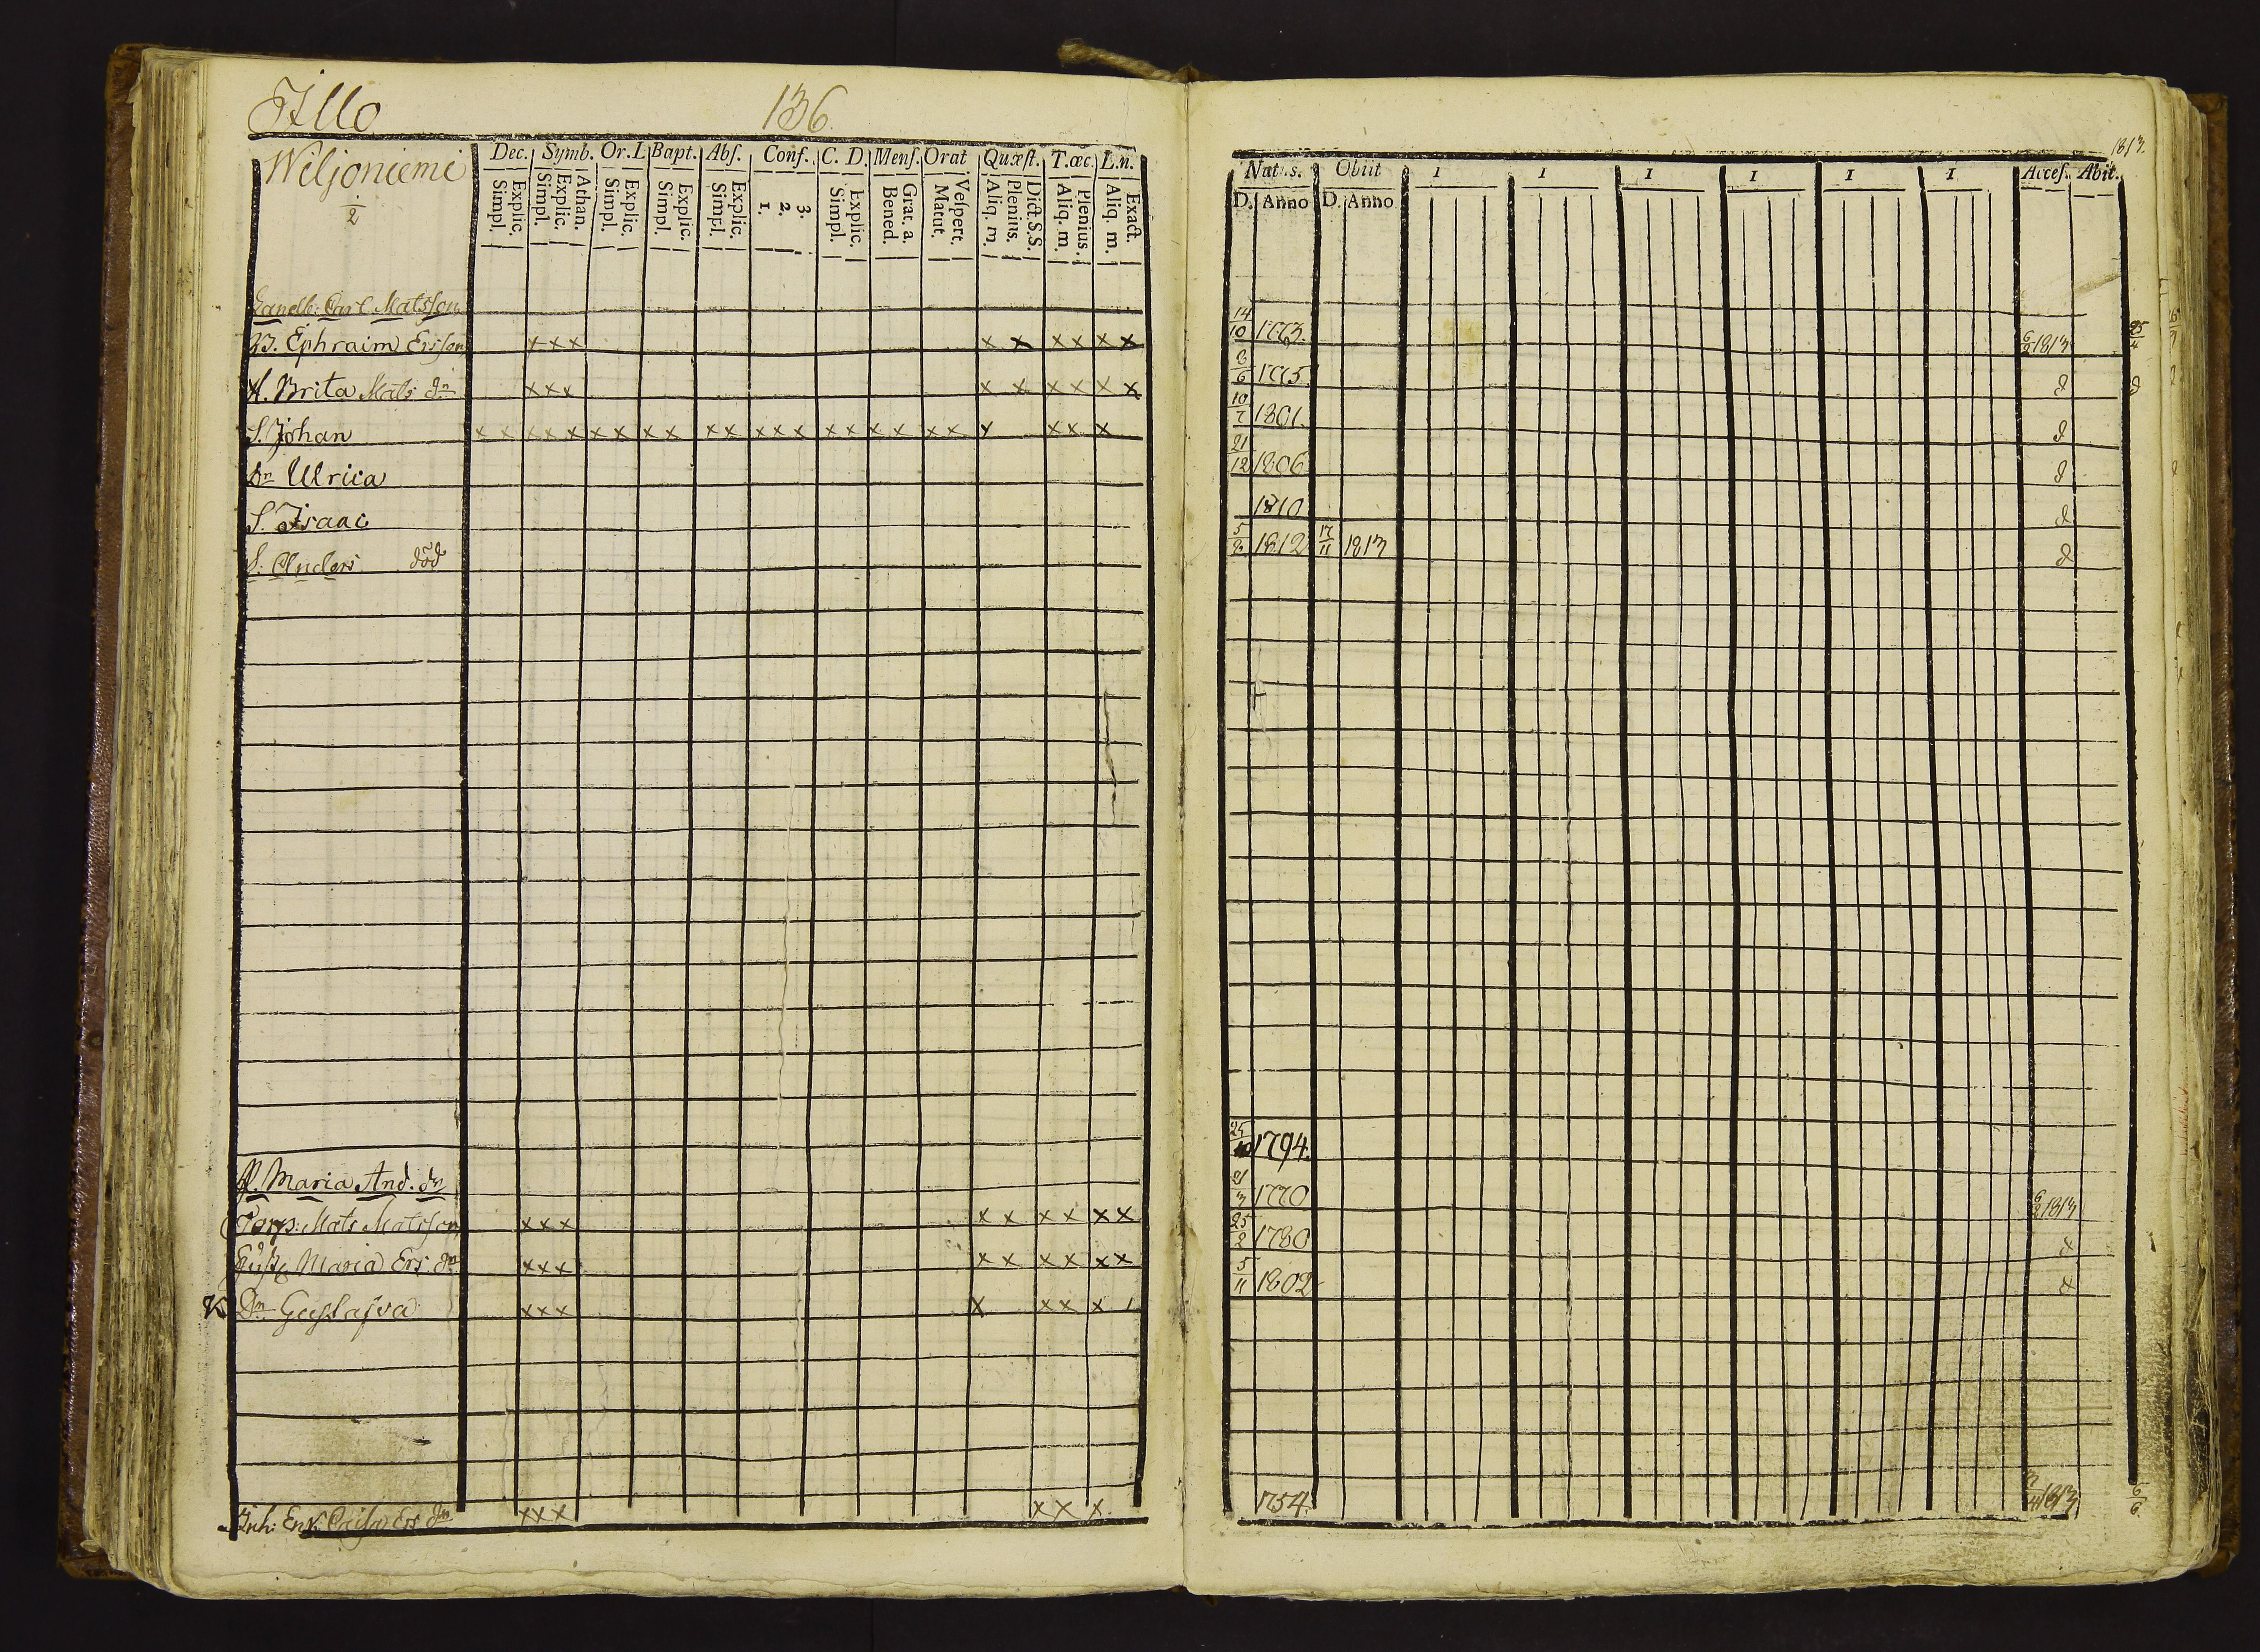 Illo 136
Wiljoniemi
1/2
Dec. Symb. Or. L Bapt. Abſ. Conf. C. D. Menſ. Orat Quæſt. T. œc. L. n.
Simpl. Explic. Simpl. Explic. Athan. Simpl. Explic. Simpl. Explic. Simpl. Explic. 1. 2. 3. Simpl. Explic. Bened. Grat. a. Matut. Veſpert. Aliq. m. Plenius. Dict. S. S. Aliq. m. Plenius. Aliq. m. Exact.
Landb: Carl Matsson
Ephraim Ersson x x x x x x x x x
H. Brita Mats dn x x x x x x x x x
S. Johan x x x x x x x x x x x x x x x x x x x x x x x x
Dn Ulrica
S. Isaac
S. Anders död
P. Maria And. dn
Torp: Mats Matsson x x x x x x x x x
Hust Maria Ers dn x x x x x x x x x
Dn Gustajva x x x x x x x
Inh: Enk Caisa Ers dn x x x x x x
1813
Nat s. Obiit 1 1 1 1 1 1 Acceſ. Abit.
D. Anno D. Anno
14/10 1773 6/2 1813 25/4
8/6 1775 d d
10/7 1801 d
21/12 1806 d
1810 d
5/8 1812 17/11 1813 d
25/10 1794.
21/3 1770 6/2 1813
25/2 1780 d
5/11 1802 d
1754. 1813 6/6